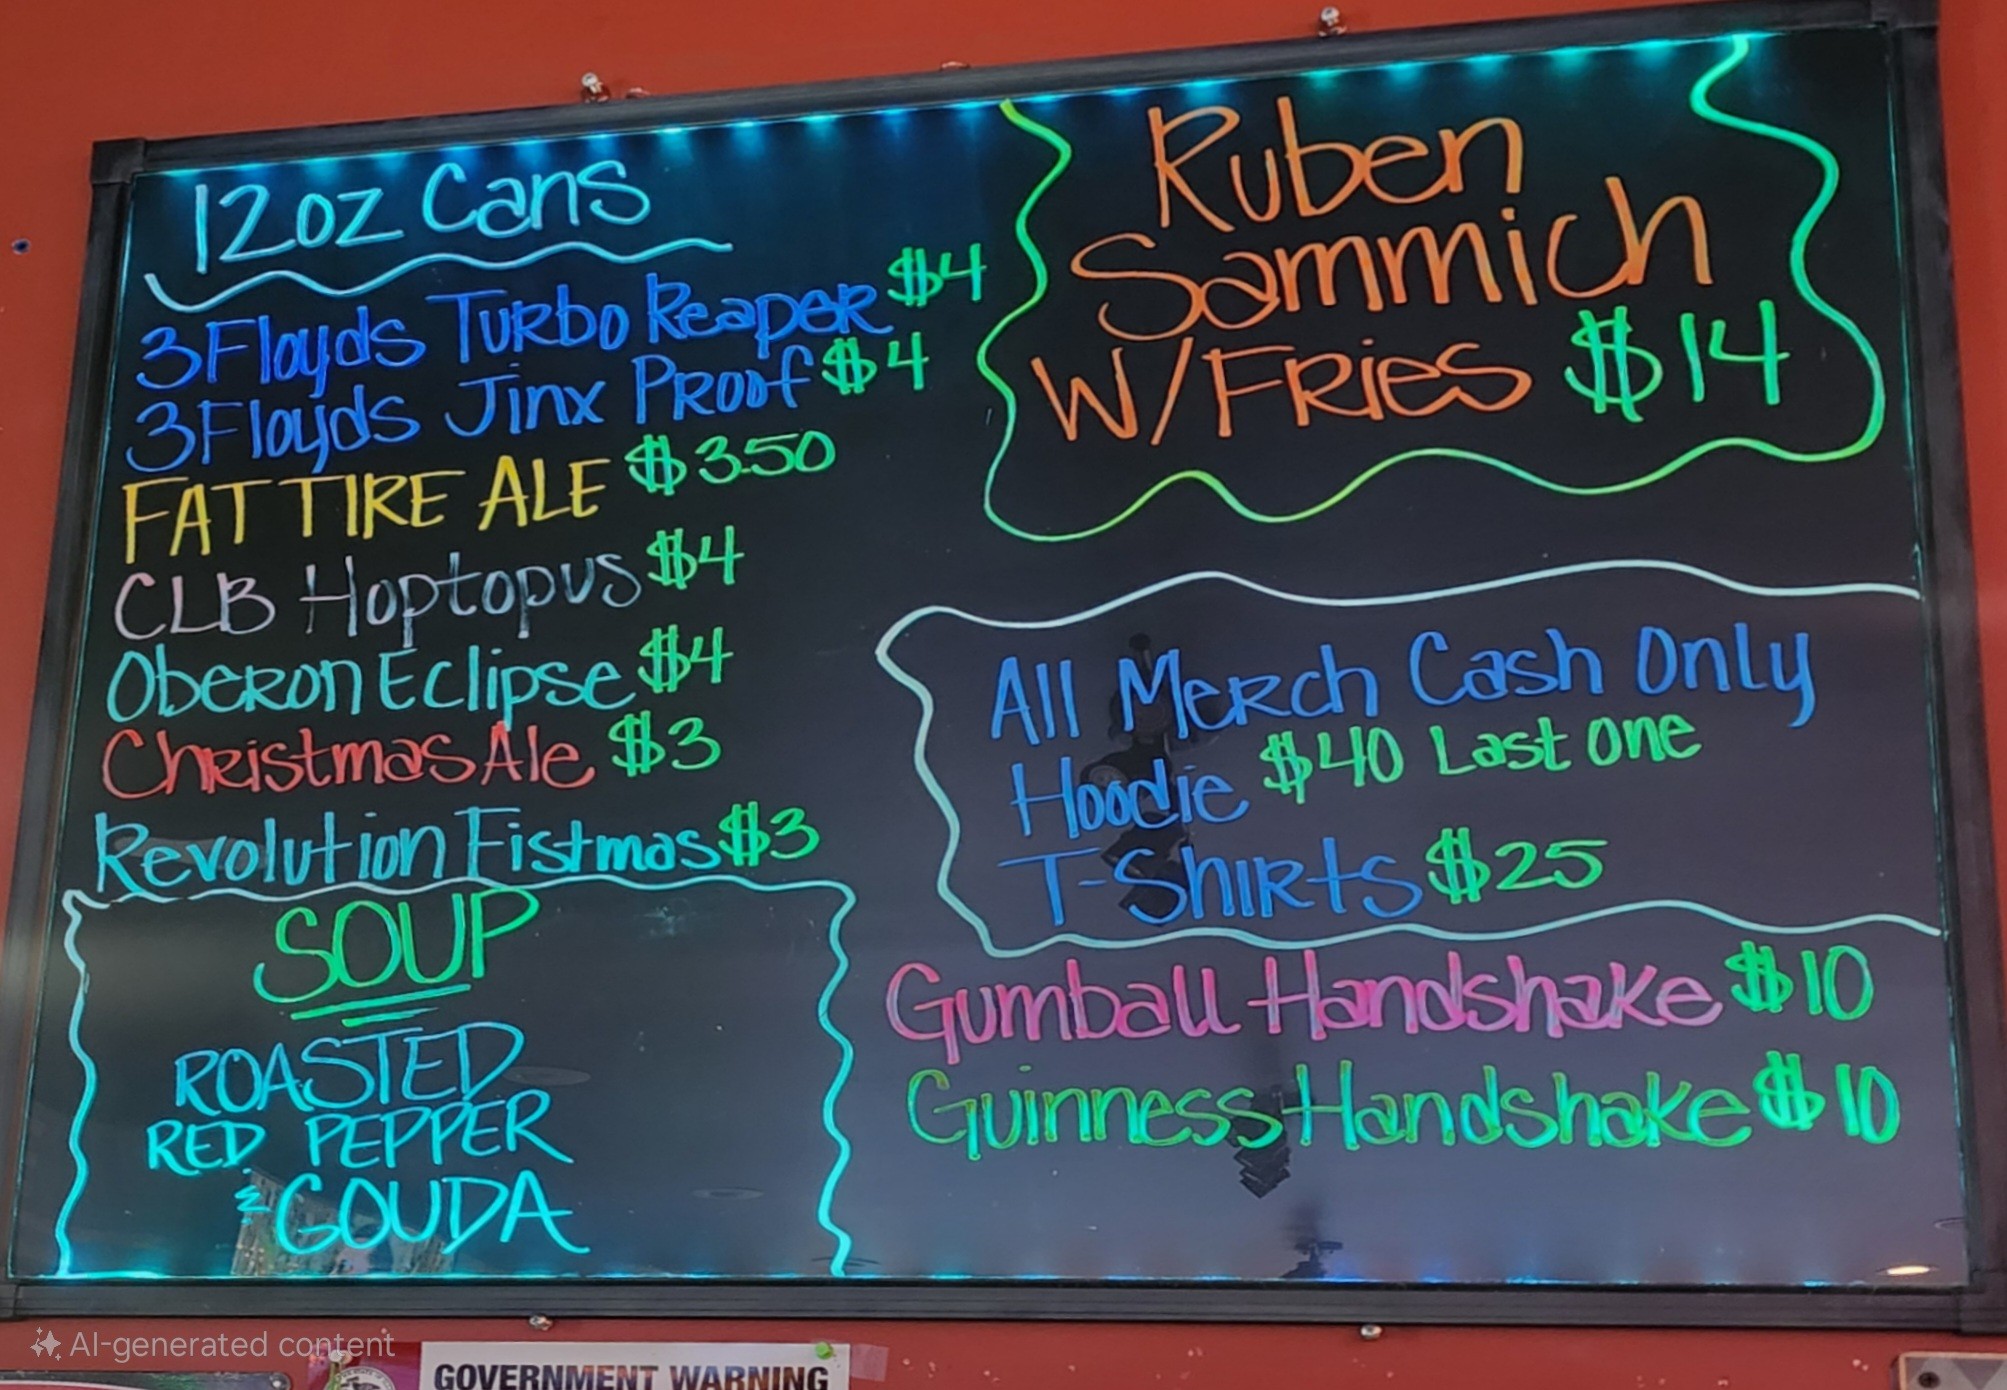 12oz Cans
3 Floyds Turbo Reaper $4
3 Floyds Jinx Proof $4
FAT TIRE ALE $3.50
CLB Hoptopus $4
Oberon Eclipse $4
Christmas Ale $3
Revolution Fistmas $3
SOUP
ROASTED
RED PEPPER
& GOUDA
Ruben
Sammich
W/Fries $14
All Merch Cash Only
Hoodie $40 Last one
T-Shirts $25
Gumball Handshake $10
Guinness Handshake $10
AI-generated content
GOVERNMENT WARNING